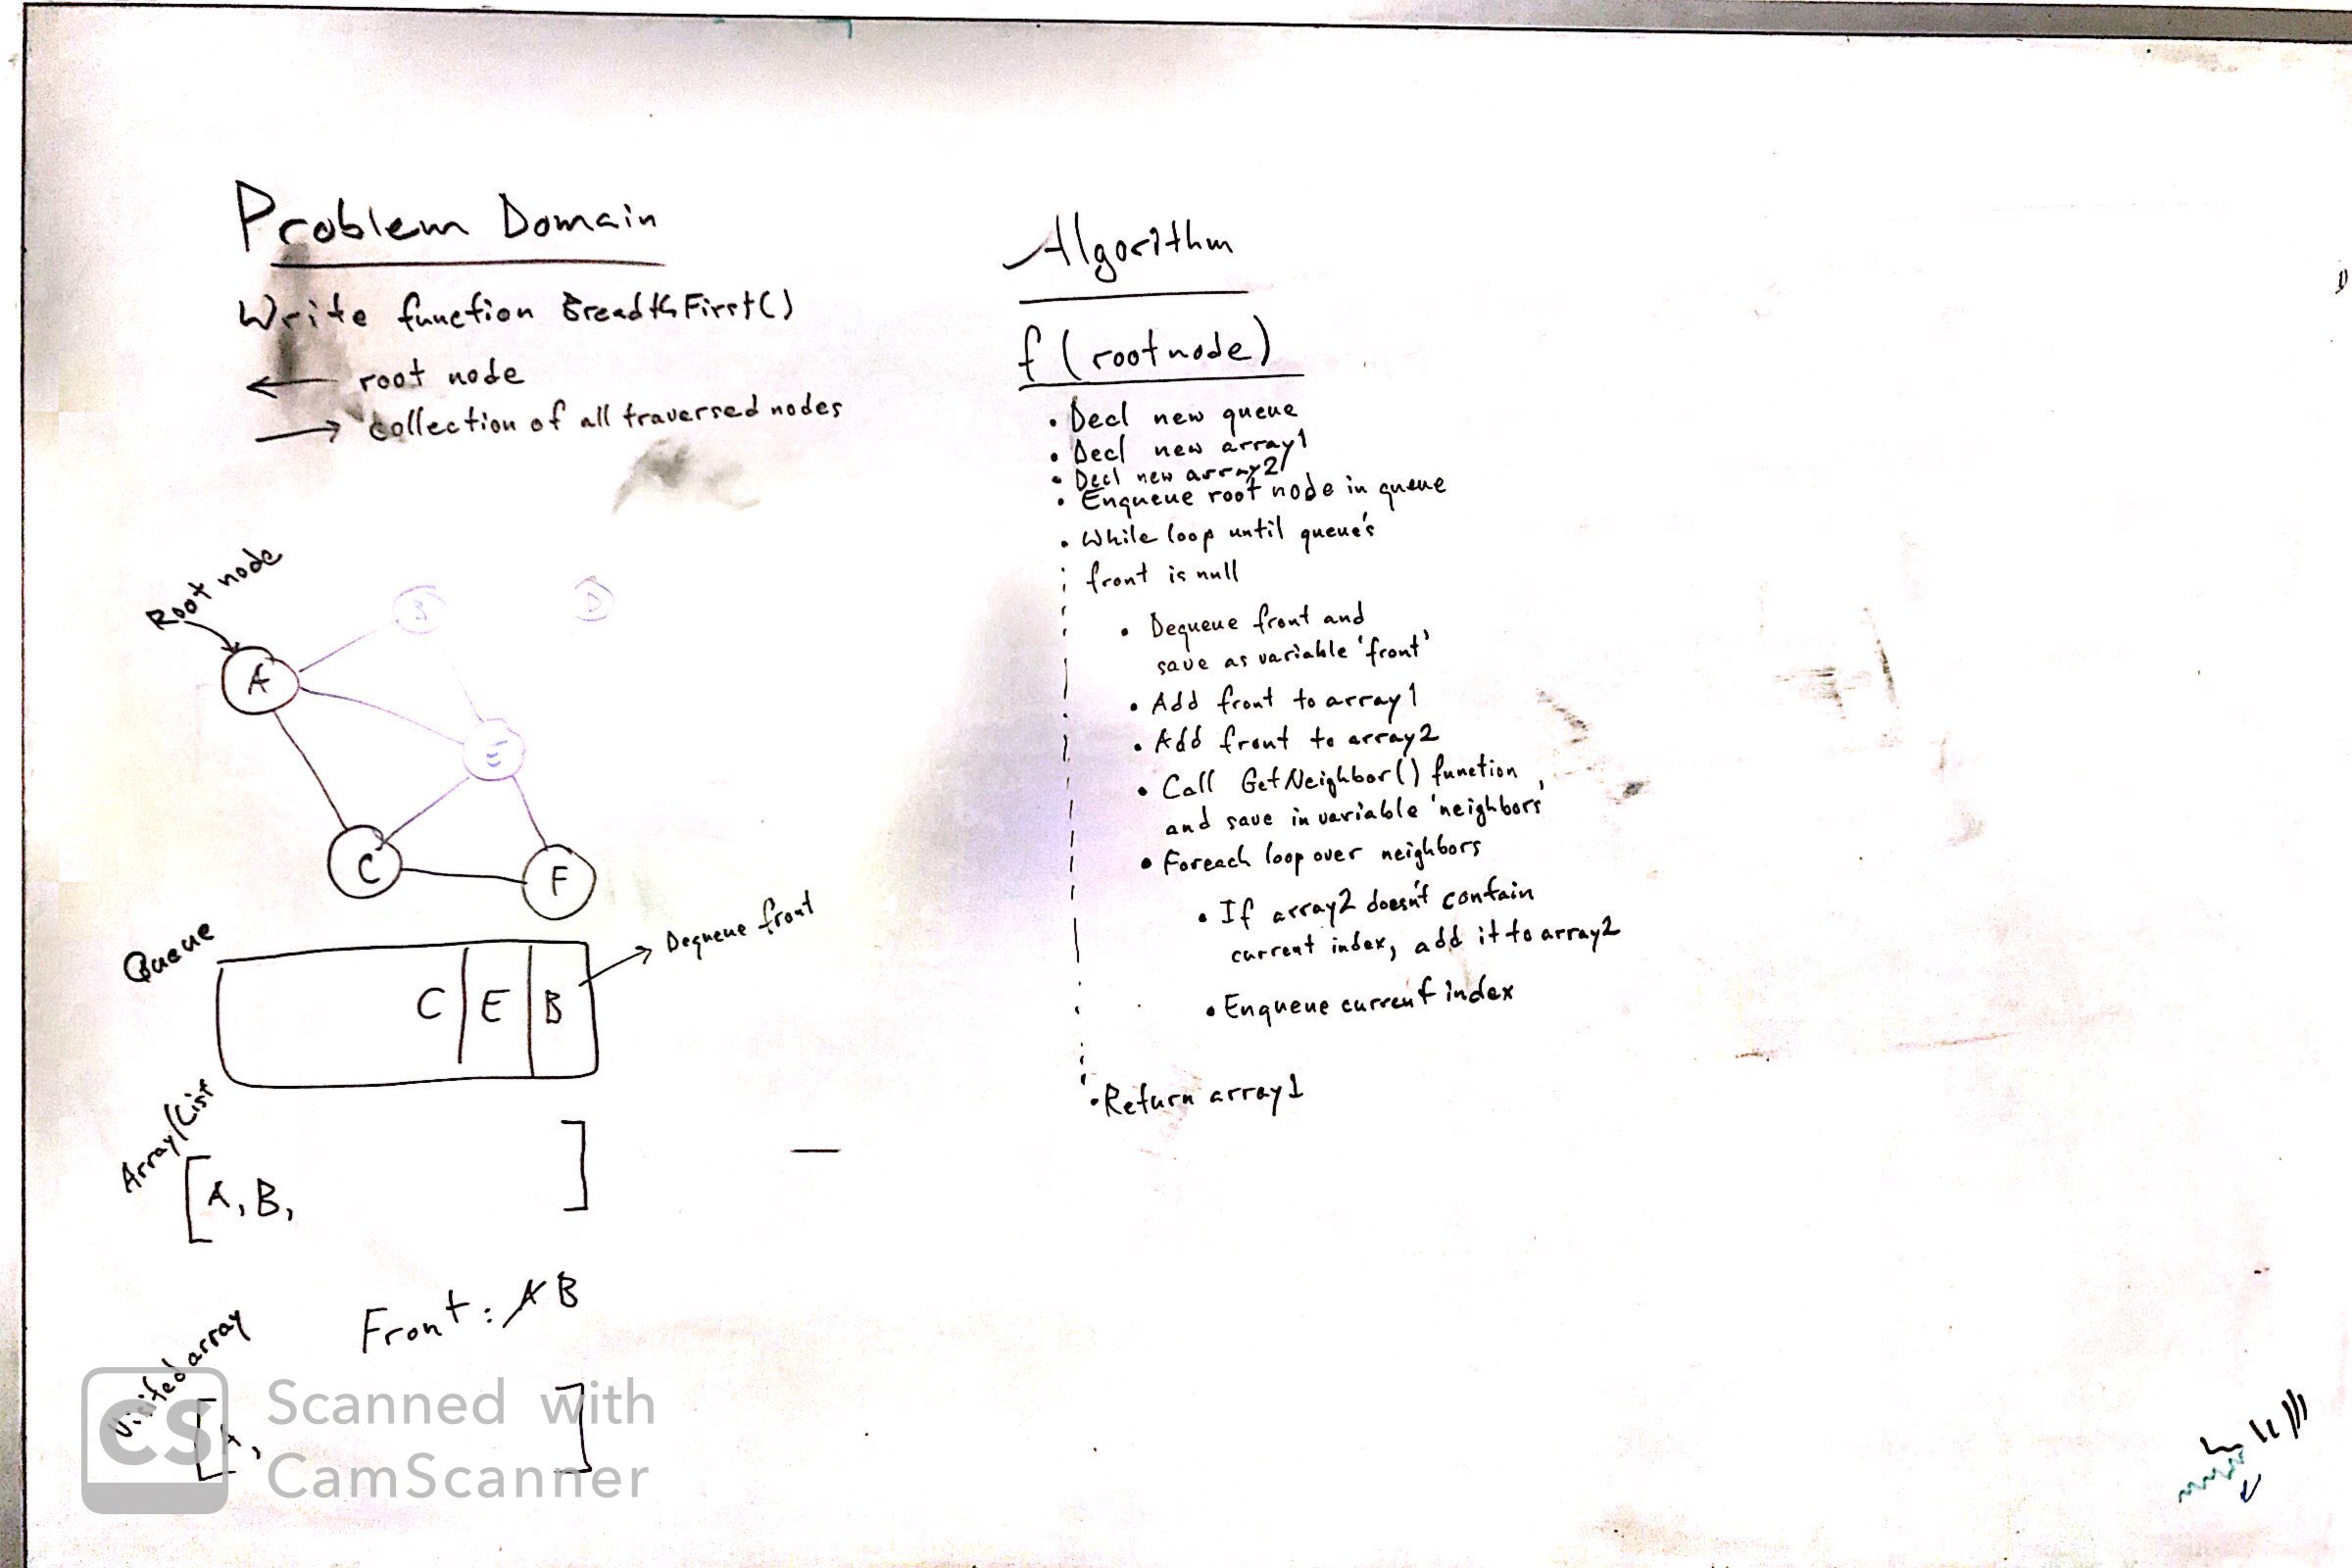 Problem Domain
Write function BreadthFirst()
← root node
→ collection of all traversed nodes
Root node
A
B
D
E
C
F
Queue
C E B
Dequeue front
Array/List
[A, B, ]
Front: A B
Visited array
[A, ]
Algorithm
f (rootnode)
• Decl new queue
• Decl new array1
• Decl new array2
• Enqueue root node in queue
• While loop until queue's
front is null
• Dequeue front and
save as variable 'front'
• Add front to array1
• Add front to array2
• Call GetNeighbor() function
and save in variable 'neighbors'
• Foreach loop over neighbors
• If array2 doesn't contain
current index, add it to array2
• Enqueue current index
• Return array1
CS
Scanned with
CamScanner